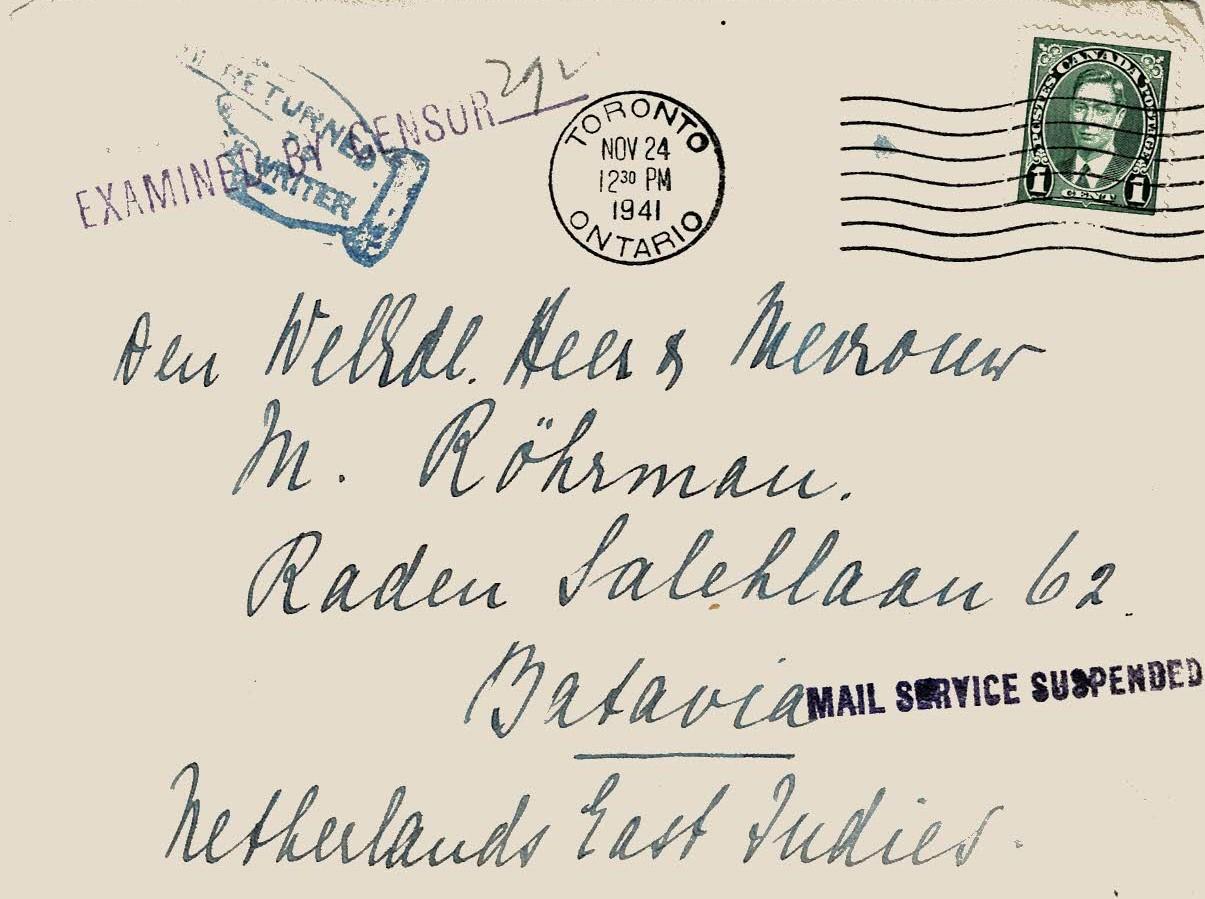 RETURNED
TO
WRITER
EXAMINED BY CENSOR 292
TORONTO
NOV 24
12³⁰ PM
1941
ONTARIO
POSTES CANADA POSTAGE
1 CENT 1
Den WelEdl. Heer & Mevrouw
M. Röhrman.
Raden Salehlaan 62.
Batavia
MAIL SERVICE SUSPENDED
Netherlands East Indies.